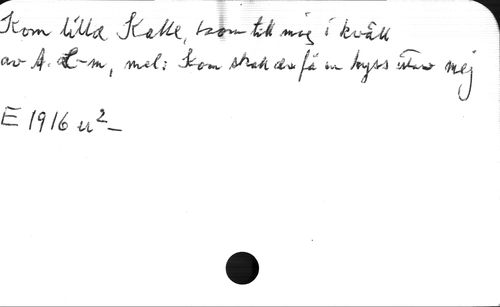 Kom lilla Kalle, kom till mig i kväll
av A. L-m, mel: Kom skall du få en kyss utav mej
E 1916 u²-